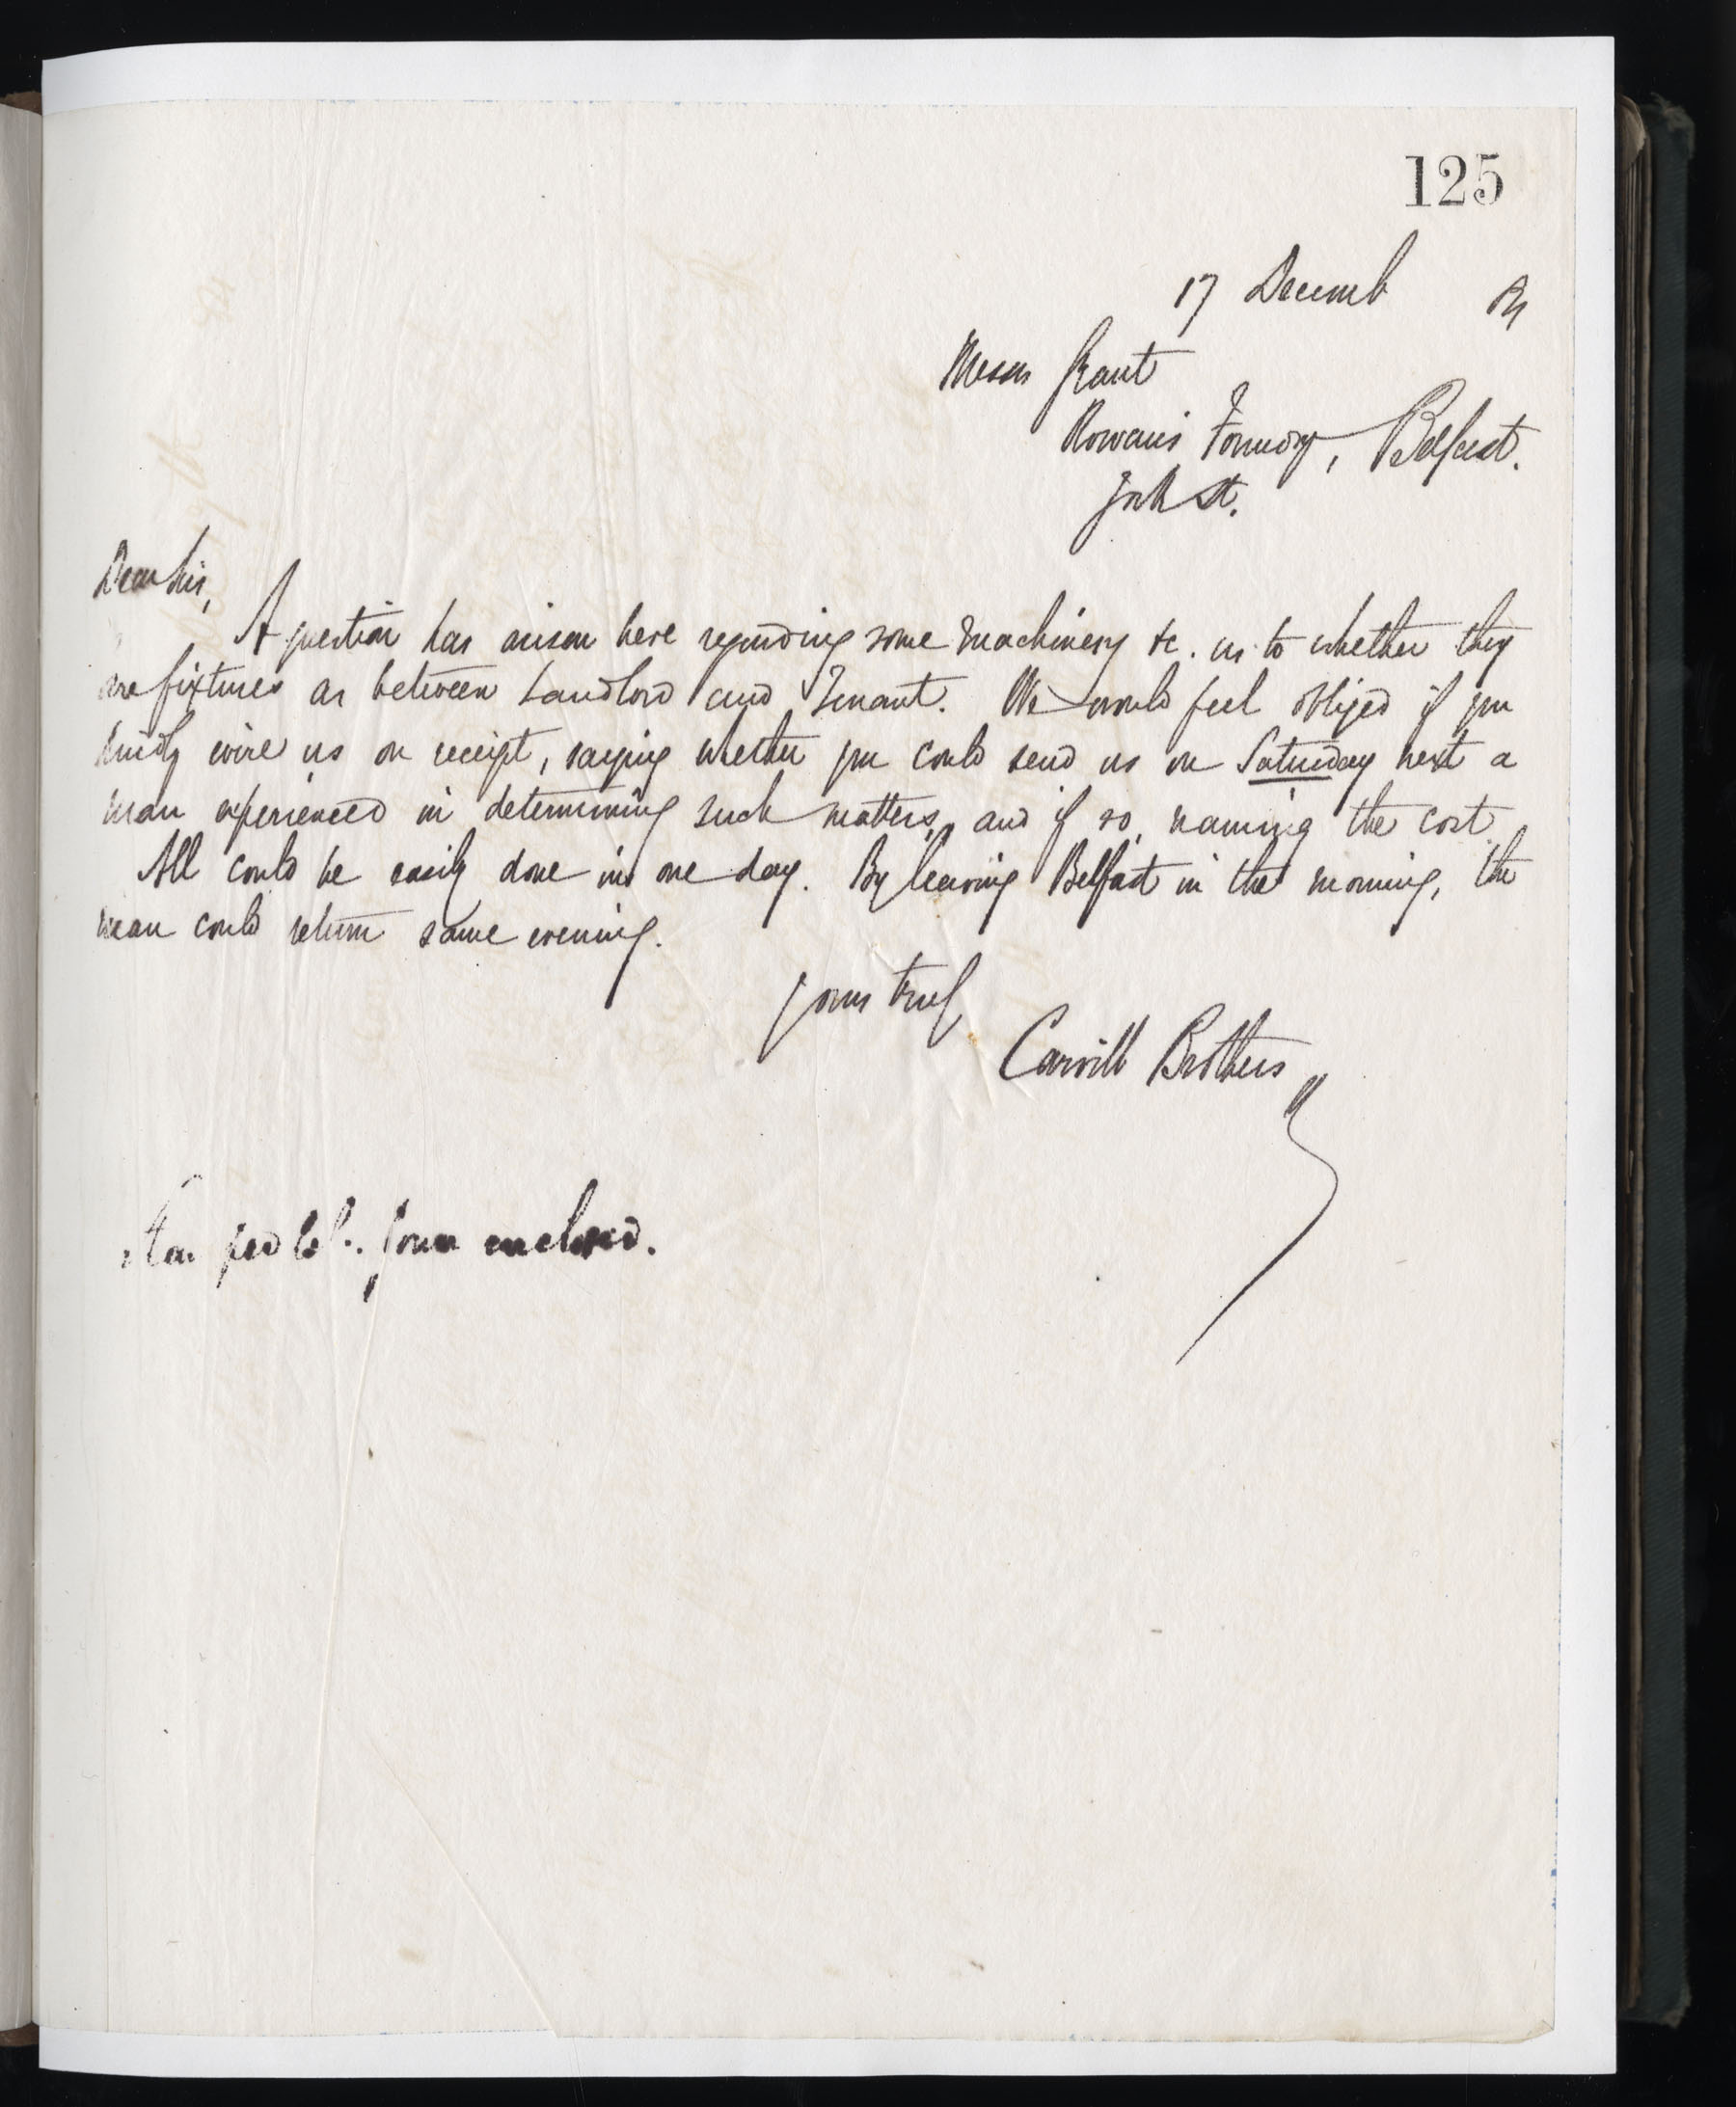 125
17 Decemb
Messrs Grant
Rowan's Foundry, Belfast.
York St.
Dear Sir,
A question has arisen here regarding some Machinery &c. as to whether they
are fixtures as between Landlord and Tenant. We would feel obliged if you
kindly wire us on receipt, saying whether you could send us on Saturday next a
man experienced in determining such matters, and if so, naming the cost.
All could be easily done in one day. By leaving Belfast in the morning, the
man could return same evening.
Yours truly
Carvill Brothers
form enclosed.